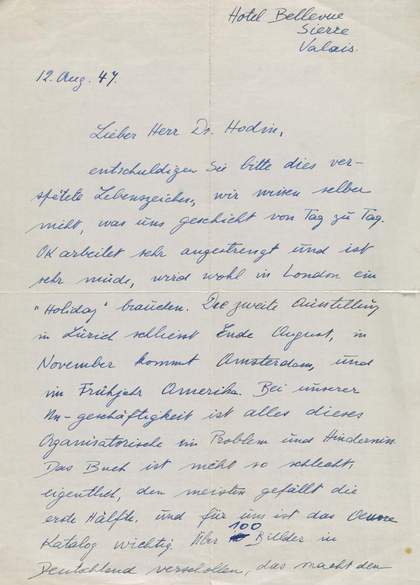 Hotel Bellevue
Sierre
Valais.
12. Aug. 47.
Lieber Herr Dr. Hodin,
entschuldigen Sie bitte dies ver-
spätete Lebenszeichen, wir wissen selber
nicht, was uns geschieht von Tag zu Tag.
OK arbeitet sehr angestrengt und ist
sehr müde, wird wohl in London ein
"Holiday" brauchen. Die zweite Ausstellung
in Zürich schliesst Ende August, in
November kommt Amsterdam, und
im Frühjahr Amerika. Bei unserer
Un-geschäftigkeit ist alles dieses
Organisatorische ein Problem und Hindernis.
Das Buch ist nicht so schlecht,
eigentlich, den meisten gefällt die
erste Hälfte, und für uns ist das Oeuvre
Katalog wichtig. Über 100 Bilder in
Deutschland verschollen, das macht den